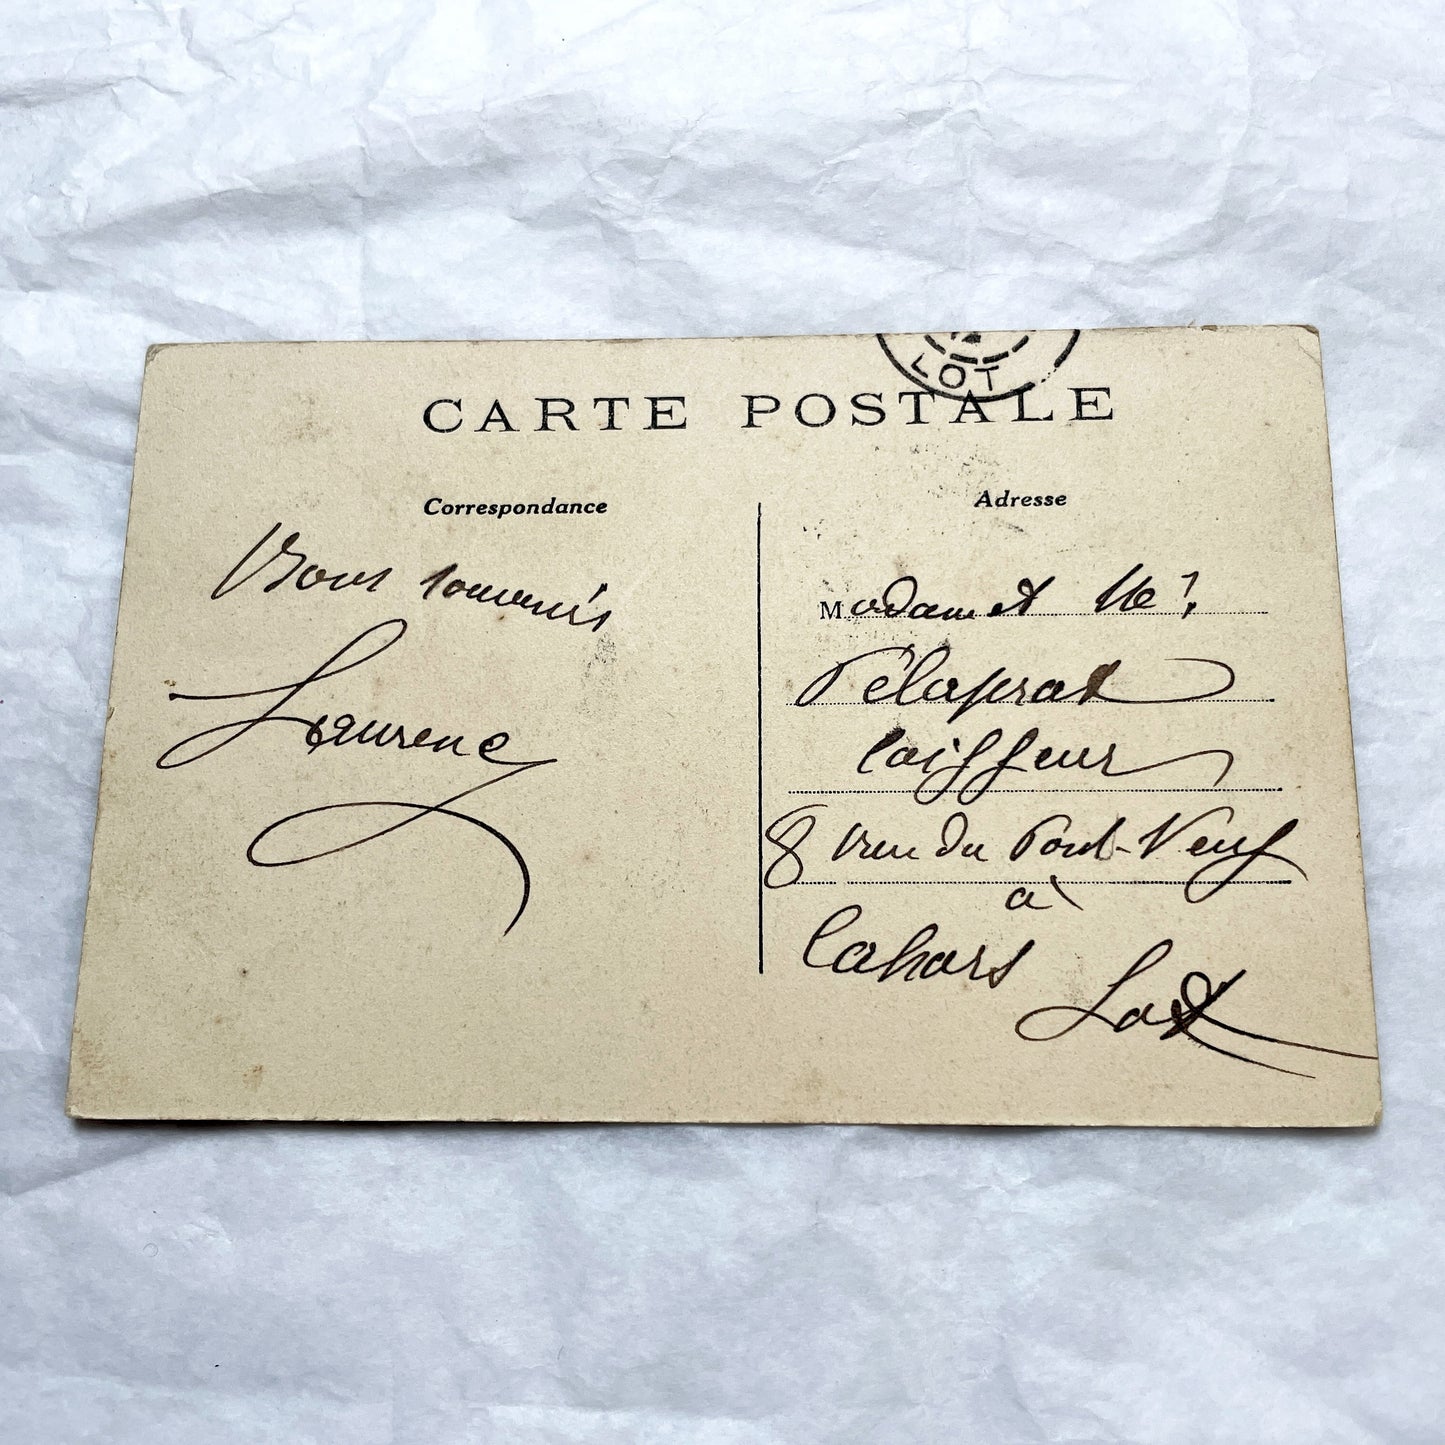 LOT
CARTE POSTALE
Correspondance
Bons souvenirs
Laurenc
Adresse
Madame et
Pélaprat
Coiffeur
8 rue du Pont-Neuf
à
Cahors Lot